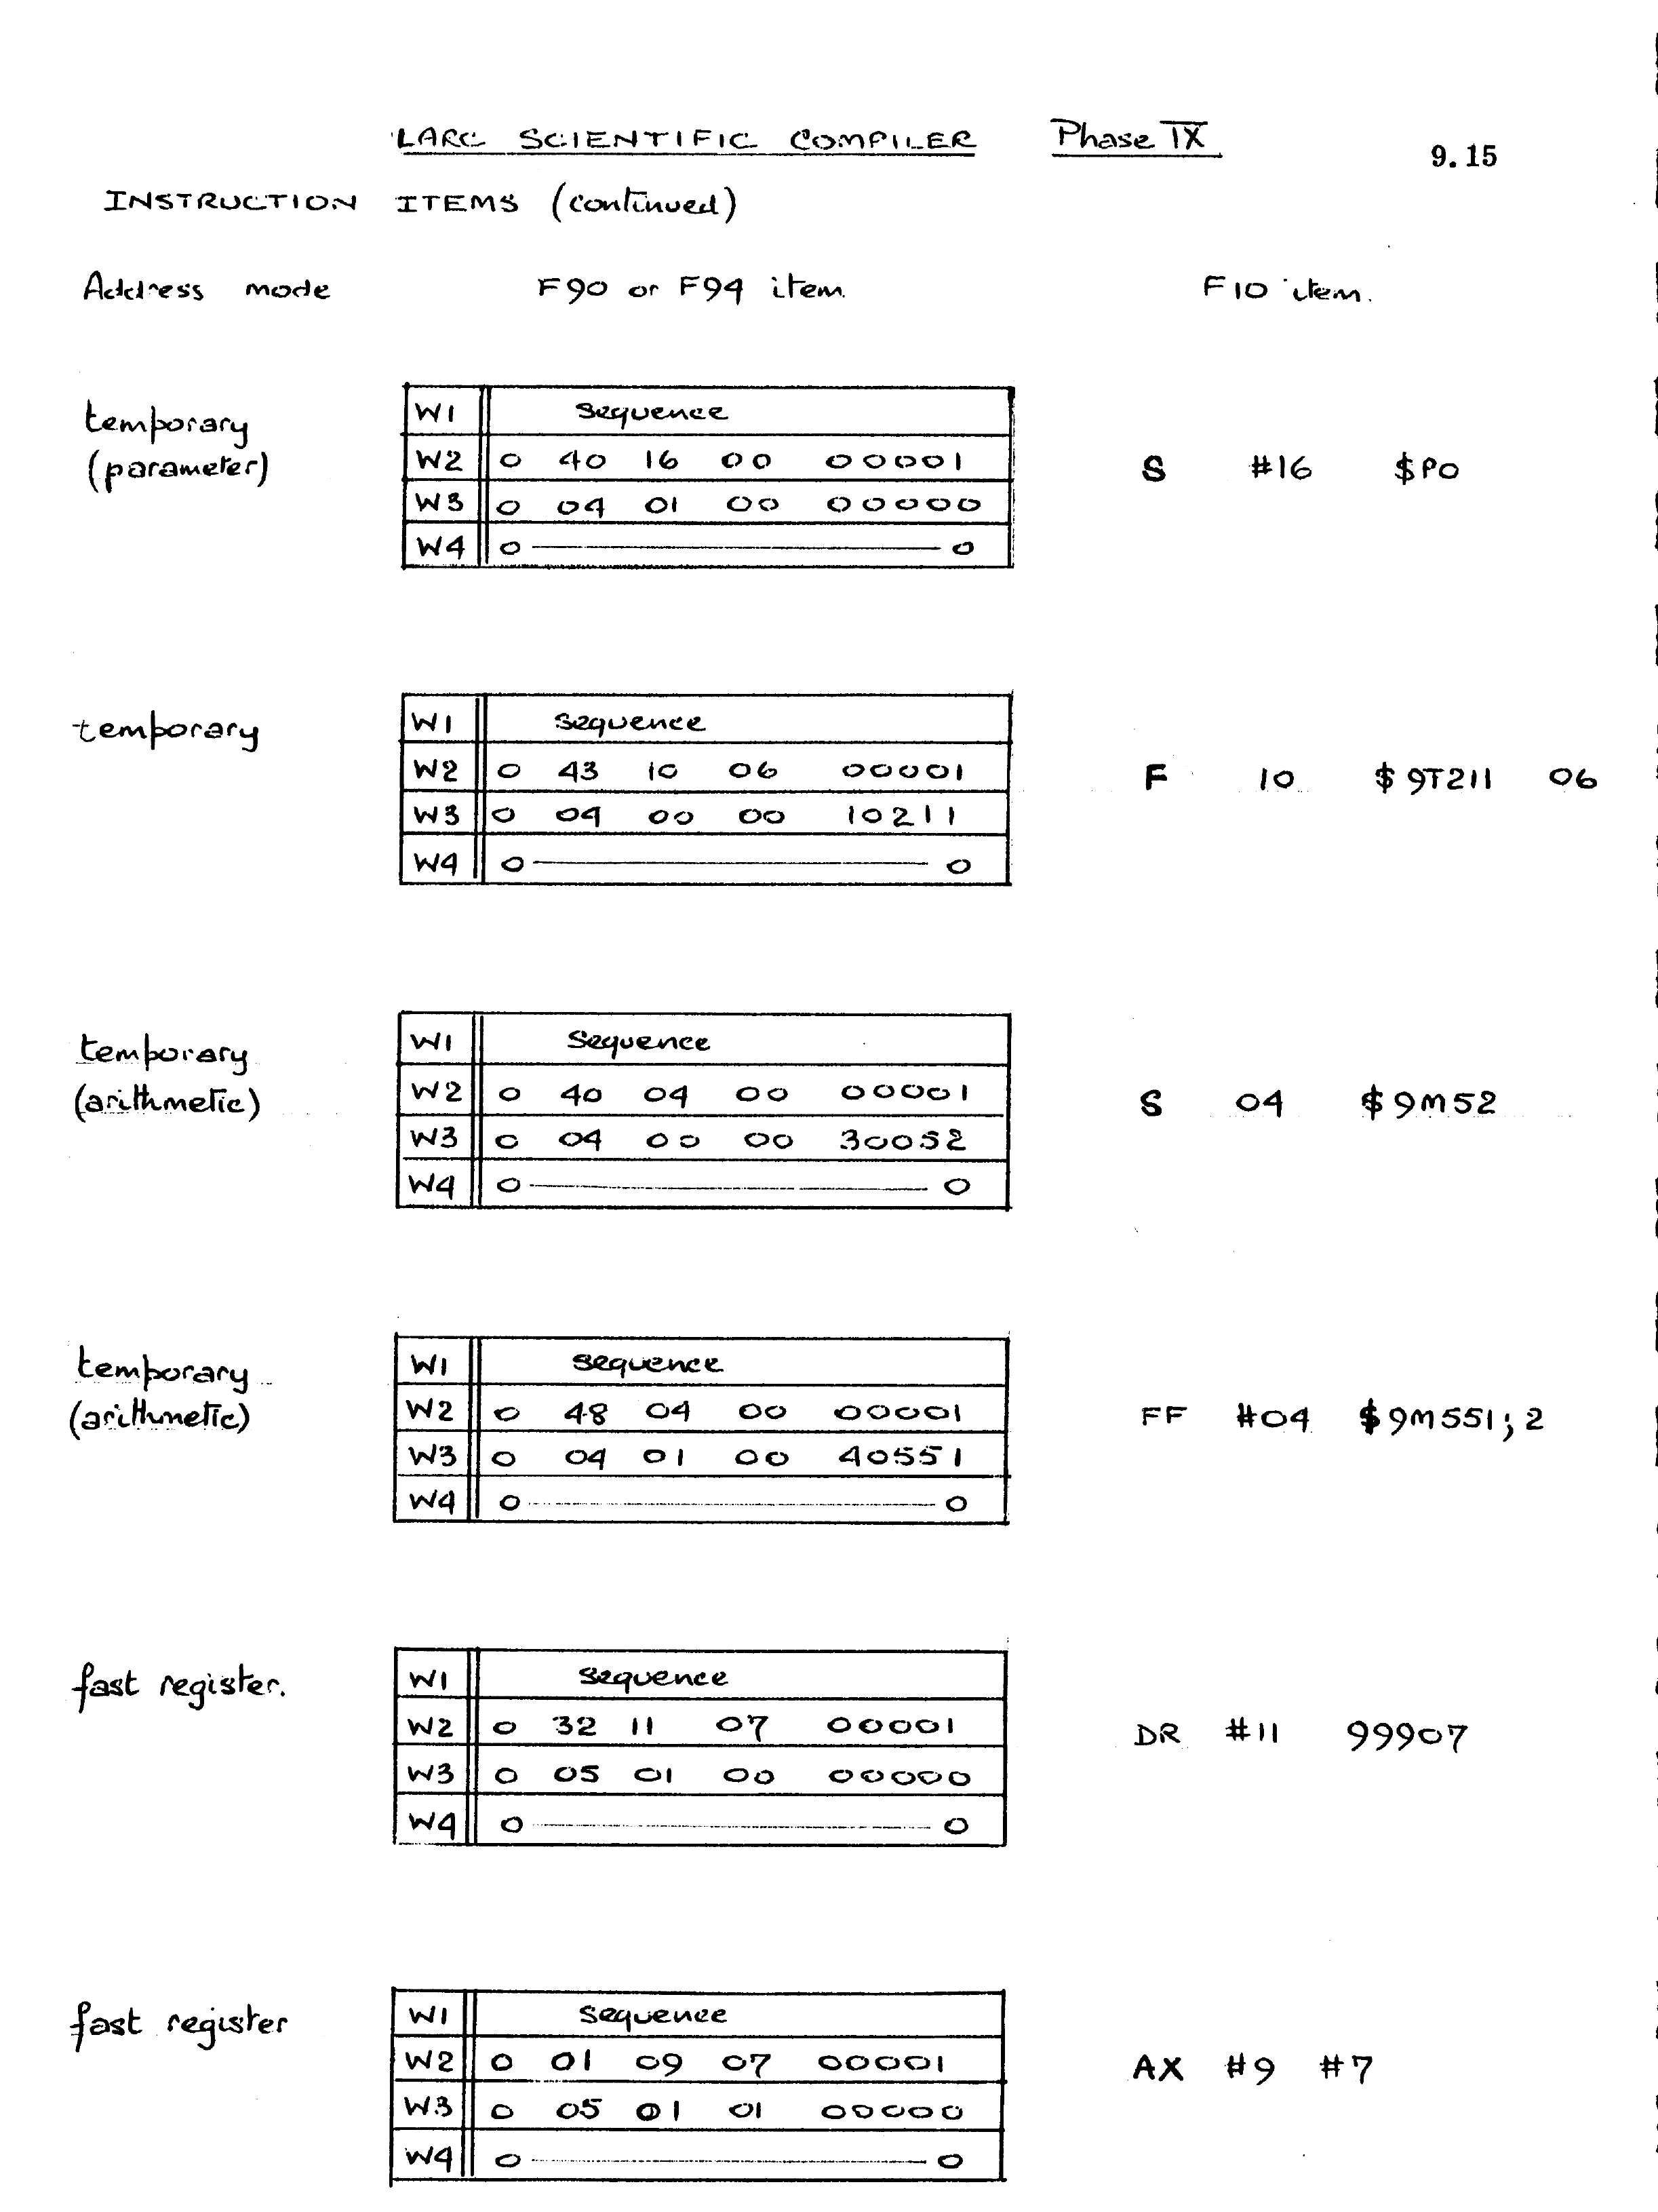 LARC SCIENTIFIC COMPILER Phase IX 9.15
INSTRUCTION ITEMS (continued)
Address mode F90 or F94 item. F10 item.
temporary
(parameter)
W1 sequence
W2 0 40 16 00 00001
W3 0 04 01 00 00000
W4 0 0
S #16 $P0
temporary
W1 sequence
W2 0 43 10 06 00001
W3 0 04 00 00 10211
W4 0 0
F 10 $9T211 06
temporary
(arithmetic)
W1 Sequence
W2 0 40 04 00 00001
W3 0 04 00 00 30052
W4 0 0
S 04 $9M52
temporary
(arithmetic)
W1 sequence
W2 0 48 04 00 00001
W3 0 04 01 00 40551
W4 0 0
FF #04 $9M551;2
fast register.
W1 sequence
W2 0 32 11 07 00001
W3 0 05 01 00 00000
W4 0 0
DR #11 99907
fast register
W1 sequence
W2 0 01 09 07 00001
W3 0 05 01 01 00000
W4 0 0
AX #9 #7